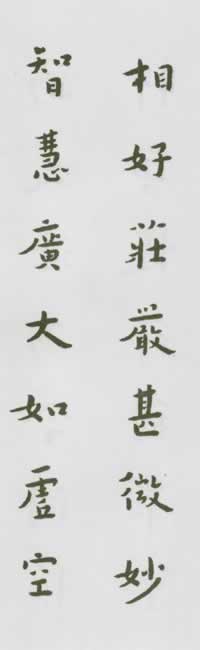 相好莊嚴甚微妙
智慧廣大如虛空